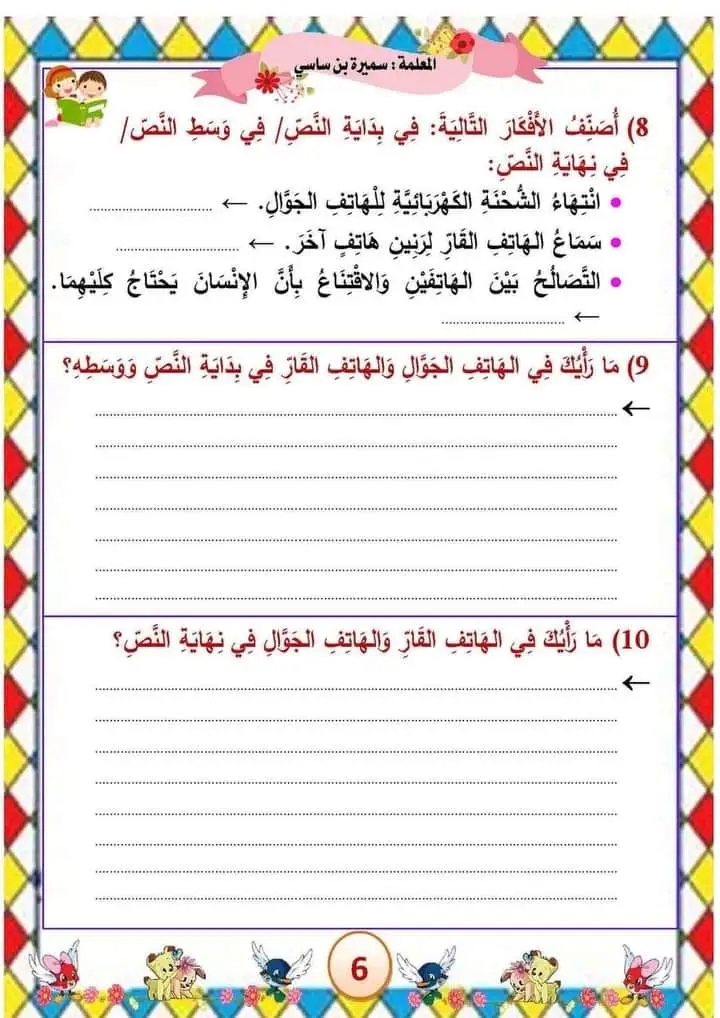 المعلمة : سميرة بن ساسي
8) أُصَنِّفُ الأَفْكَارَ التَّالِيَةَ: فِي بِدَايَةِ النَّصِّ/ فِي وَسَطِ النَّصّ/
فِي نِهَايَةِ النَّصِّ:
• انْتِهَاءُ الشُّحْنَةِ الكَهْرَبَائِيَّةِ لِلْهَاتِفِ الجَوَّالِ. ← ..............................
• سَمَاعُ الهَاتِفِ القَارِّ لِرَنِينِ هَاتِفٍ آخَرَ. ← ..............................
• التَّصَالُحُ بَيْنَ الهَاتِفَيْنِ وَالاقْتِنَاعُ بِأَنَّ الإِنْسَانَ يَحْتَاجُ كِلَيْهِمَا.
← ..............................
9) مَا رَأْيُكَ فِي الهَاتِفِ الجَوَّالِ وَالهَاتِفِ القَارِّ فِي بِدَايَةِ النَّصِّ وَوَسَطِهِ؟
10) مَا رَأْيُكَ فِي الهَاتِفِ القَارِّ وَالهَاتِفِ الجَوَّالِ فِي نِهَايَةِ النَّصِّ؟
6